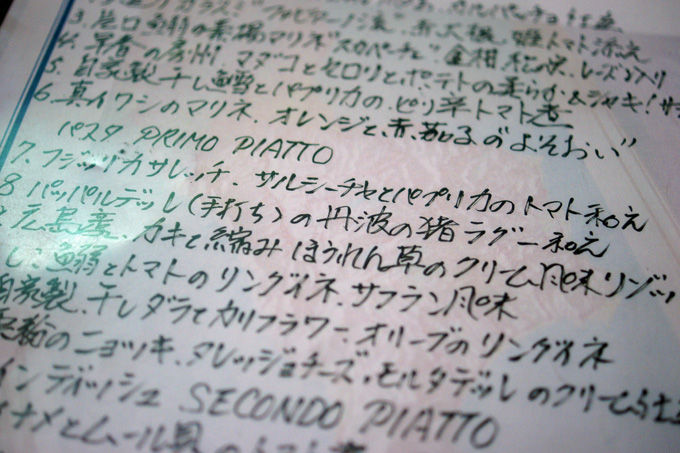 カルパッチョ仕立
"フィレンツェ"風、赤大根、姫トマト添え
3. 出口 鰯の素揚マリネ"スカペーチェ" 金柑 松の実、レーズン入り
4. 房州、マダコとセロリとポテトの柔らか&シャキ!サ
5. 自家製干し鱈とパプリカの、ピリ辛トマト煮
6. 真イワシのマリネ、オレンジと、赤茄子の"よそおい"
パスタ PRIMO PIATTO
7. フジッリカサレッチ、サルシーチャとパプリカのトマト和え
8 パッパルデッレ(手打ち)の丹波の猪ラグー和え
広島産 カキと縮みほうれん草のクリーム風味リゾッ
鰯とトマトのリングイネ、サフラン風味
自家製、干しダラとカリフラワー、オリーブのリングイネ
粉のニョッキ、タレッジョチーズ、モルタデッレのクリーム
インディッシュ SECONDO PIATTO
イナメとムール貝のトマト煮